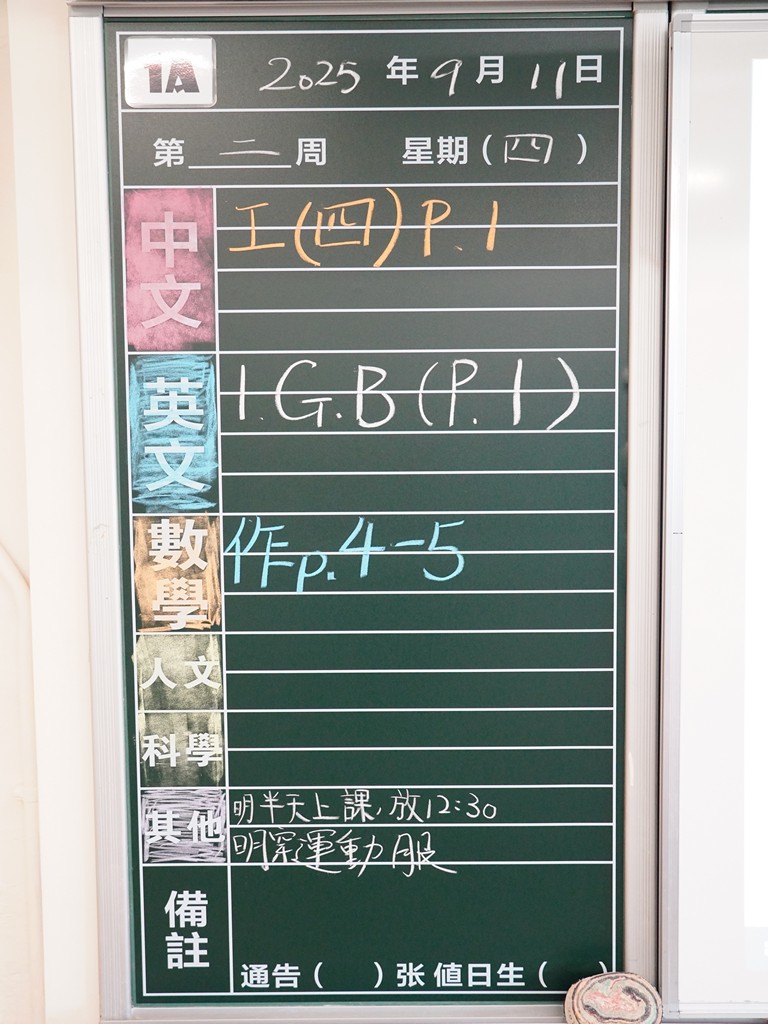 1A 2025 年 9 月 11 日
第 二 周 星期 ( 四 )
中文 工(四) P.1
英文 1. G.B (P.1)
數學 作p.4-5
人文
科學
其他 明半天上課,放12:30
明穿運動服
備註
通告 ( ) 张 值日生 ( )